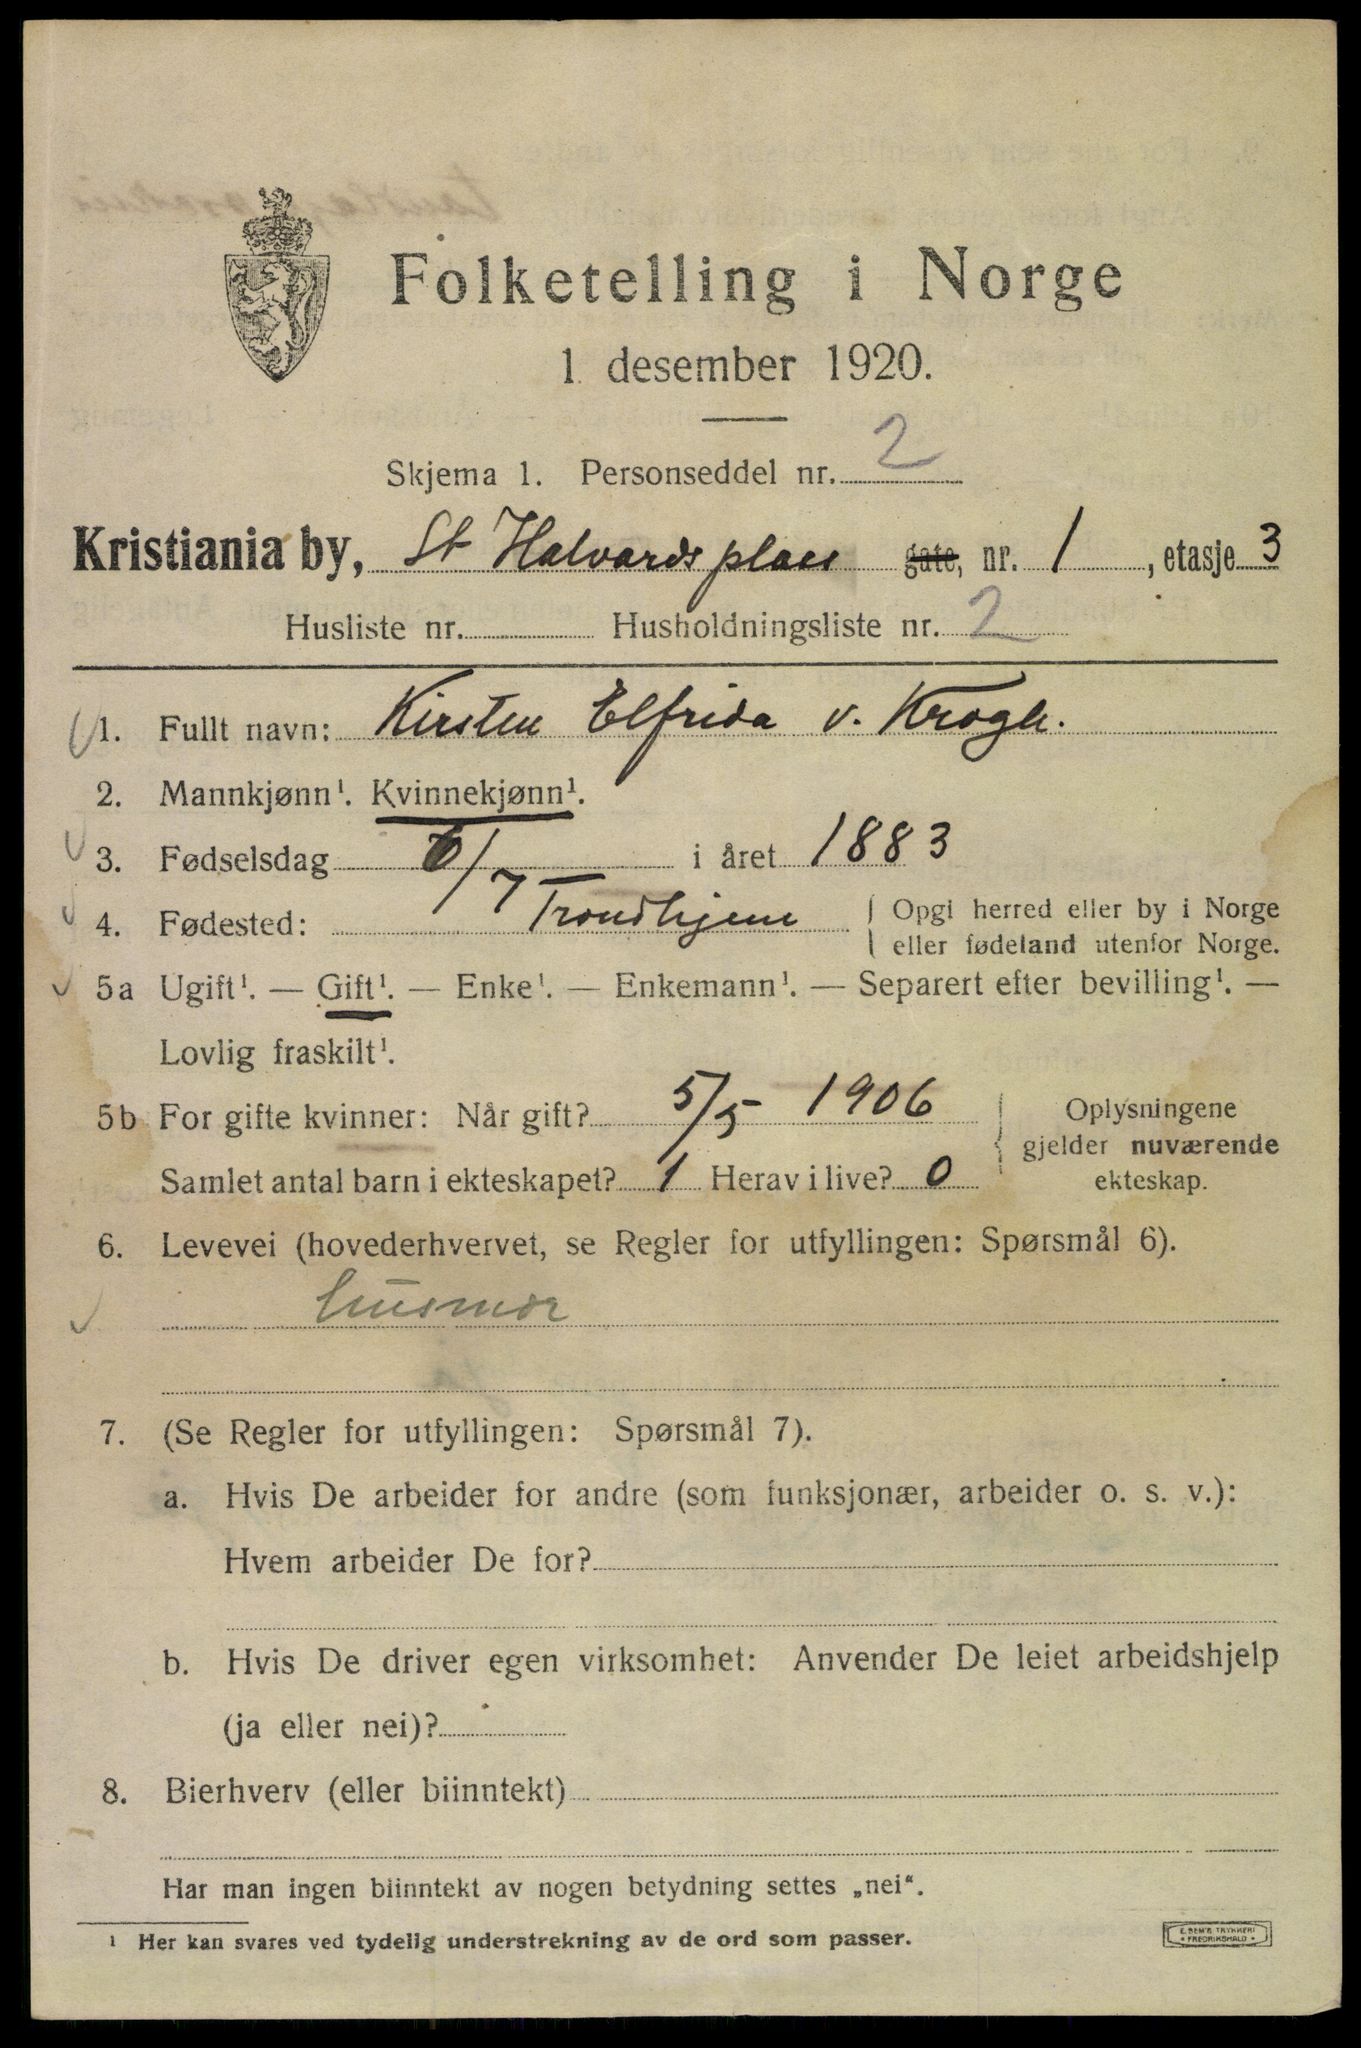 Folketelling i Norge
1. desember 1920.
Skjema 1. Personseddel nr. 2
Kristiania by, St Halvards plass gate, nr. 1, etasje 3
Husliste nr. Husholdningsliste nr. 2
1. Fullt navn: Kirsten Elfrida v. Krogh.
2. Mannkjønn¹. Kvinnekjønn¹.
3. Fødselsdag 6/7 i året 1883
4. Fødested: Trondhjem { Opgi herred eller by i Norge
eller fødeland utenfor Norge.
5a Ugift¹. — Gift¹. — Enke¹. — Enkemann¹. — Separert efter bevilling¹. —
Lovlig fraskilt¹.
5b For gifte kvinner: Når gift? 5/5 1906
Samlet antal barn i ekteskapet? 1 Herav i live? 0
Oplysningene
gjelder nuværende
ekteskap.
6. Levevei (hovederhvervet, se Regler for utfyllingen: Spørsmål 6).
husmor
7. (Se Regler for utfyllingen: Spørsmål 7).
a. Hvis De arbeider for andre (som funksjonær, arbeider o. s. v.):
Hvem arbeider De for?
b. Hvis De driver egen virksomhet: Anvender De leiet arbeidshjelp
(ja eller nei)?
8. Bierhverv (eller biinntekt)
Har man ingen biinntekt av nogen betydning settes „nei“.
¹ Her kan svares ved tydelig understrekning av de ord som passer.
E. SEM'S TRYKKERI
* FREDRIKSHALD *